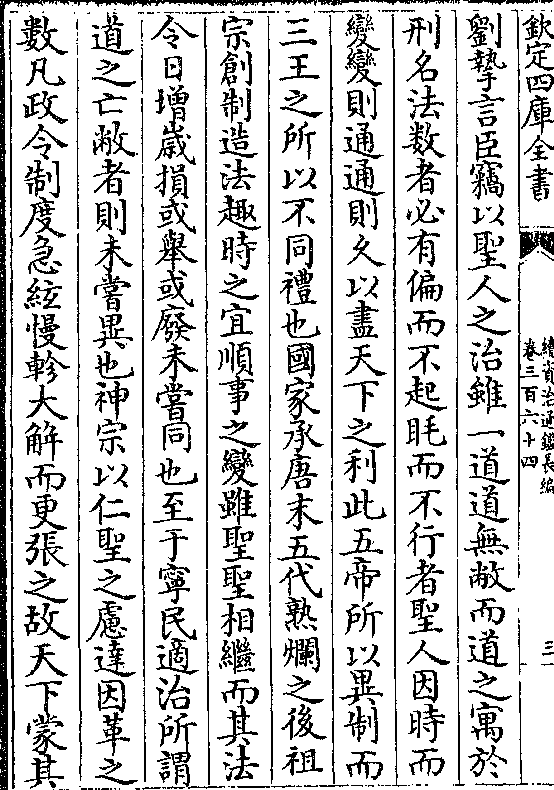 欽定四庫全書
續資治通鑑長編
卷三百六十四
三
劉摯言臣竊以聖人之治雖一道道無敝而道之寓於
刑名法數者必有偏而不起眊而不行者聖人因時而
變變則通通則久以盡天下之利此五帝所以異制而
三王之所以不同禮也國家承唐末五代熟爛之後祖
宗創制造法趣時之宜順事之變雖聖聖相繼而其法
令日增歳損或舉或廢未嘗同也至于寧民適治所謂
道之亡敝者則未嘗異也神宗以仁聖之慮達因革之
數凡政令制度急絃慢軫大解而更張之故天下蒙其